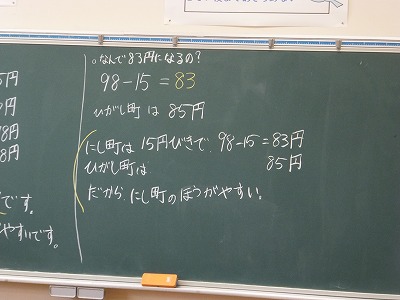 5円
8円
8円
です。
やすいです。
○なんで83円になるの?
98-15=83
ひがし町は 85円
にし町は 15円びきで、98-15=83円
ひがし町は 85円
だから、にし町のほうがやすい。